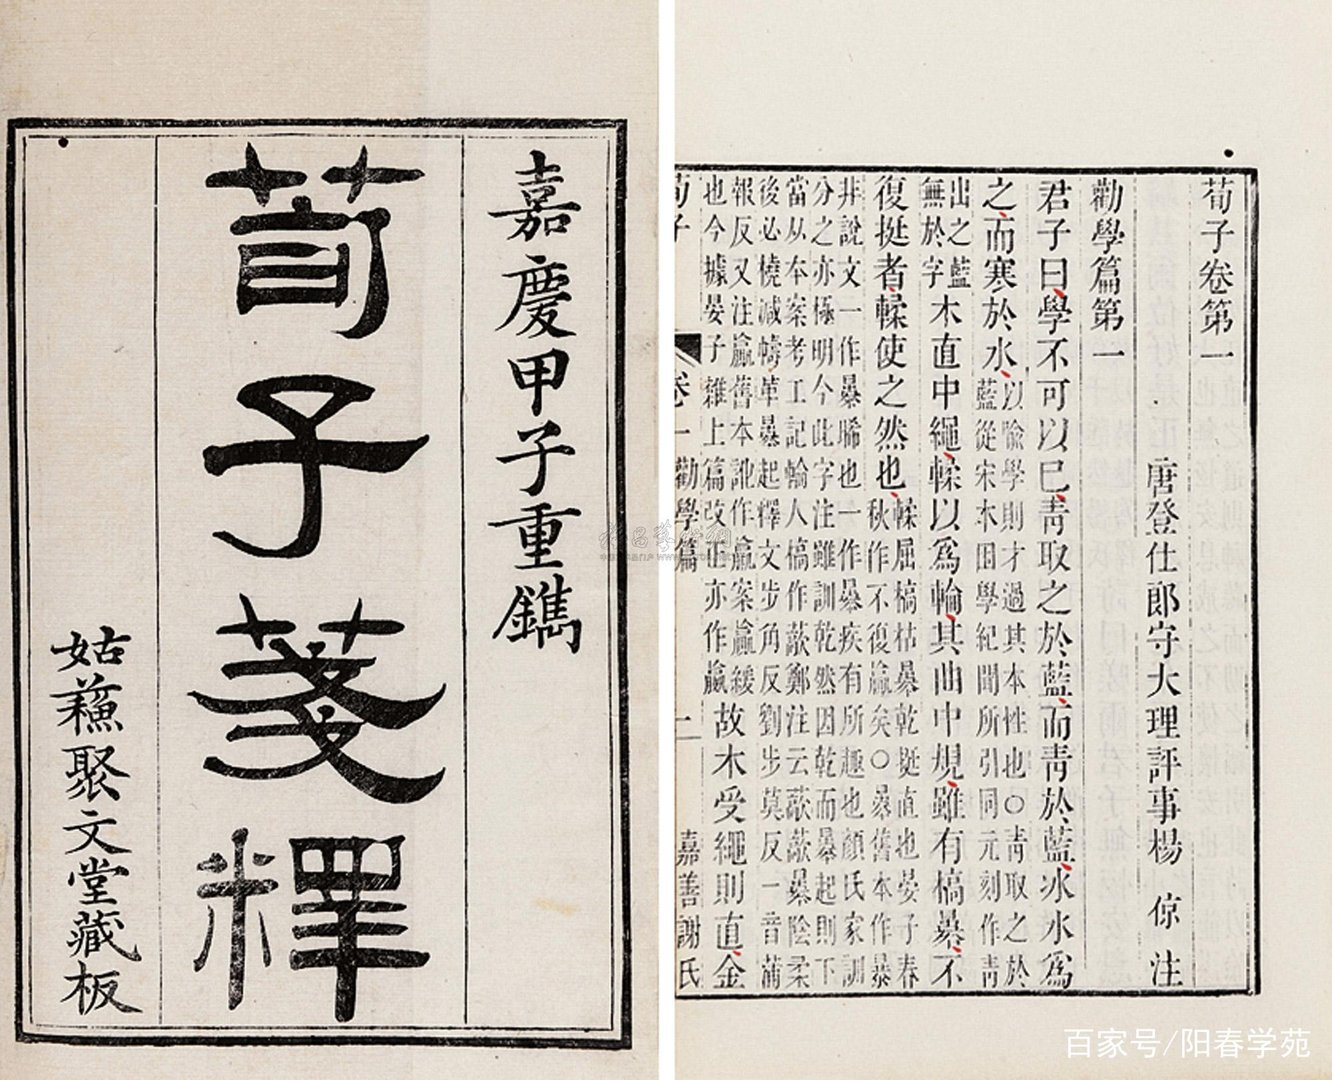 嘉慶甲子重鐫
荀子箋釋
姑蘓聚文堂藏板
荀子卷第一
唐登仕郎守大理評事楊 倞 注
勸學篇第一
君子曰學不可以已靑取之於藍而靑於藍冰水爲
之而寒於水
以喻學則才過其本性也○靑取之於
藍從宋本困學紀聞所引同元刻作靑
出之藍
無於字
木直中繩輮以爲輪其曲中規雖有槁暴不
復挺者輮使之然也
輮屈槁枯暴乾挺直也晏子春
秋作不復贏矣○暴舊本作暴
非說文一作㬥晞也一作㬥疾有所趣也顏氏家訓
分之亦極明今此字注雖訓乾然因乾而暴起則下
當从本案考工記輪人槁作藃鄭注云藃藃暴陰柔
後必橈減幬革暴起釋文步角反劉步莫反一音蒲
報反又注贏舊本訛作贏案贏緩
也今據晏子雜上篇改正亦作贏
故木受繩則直金
荀子
卷一勸學篇
一
嘉善謝氏
百家号/阳春学苑